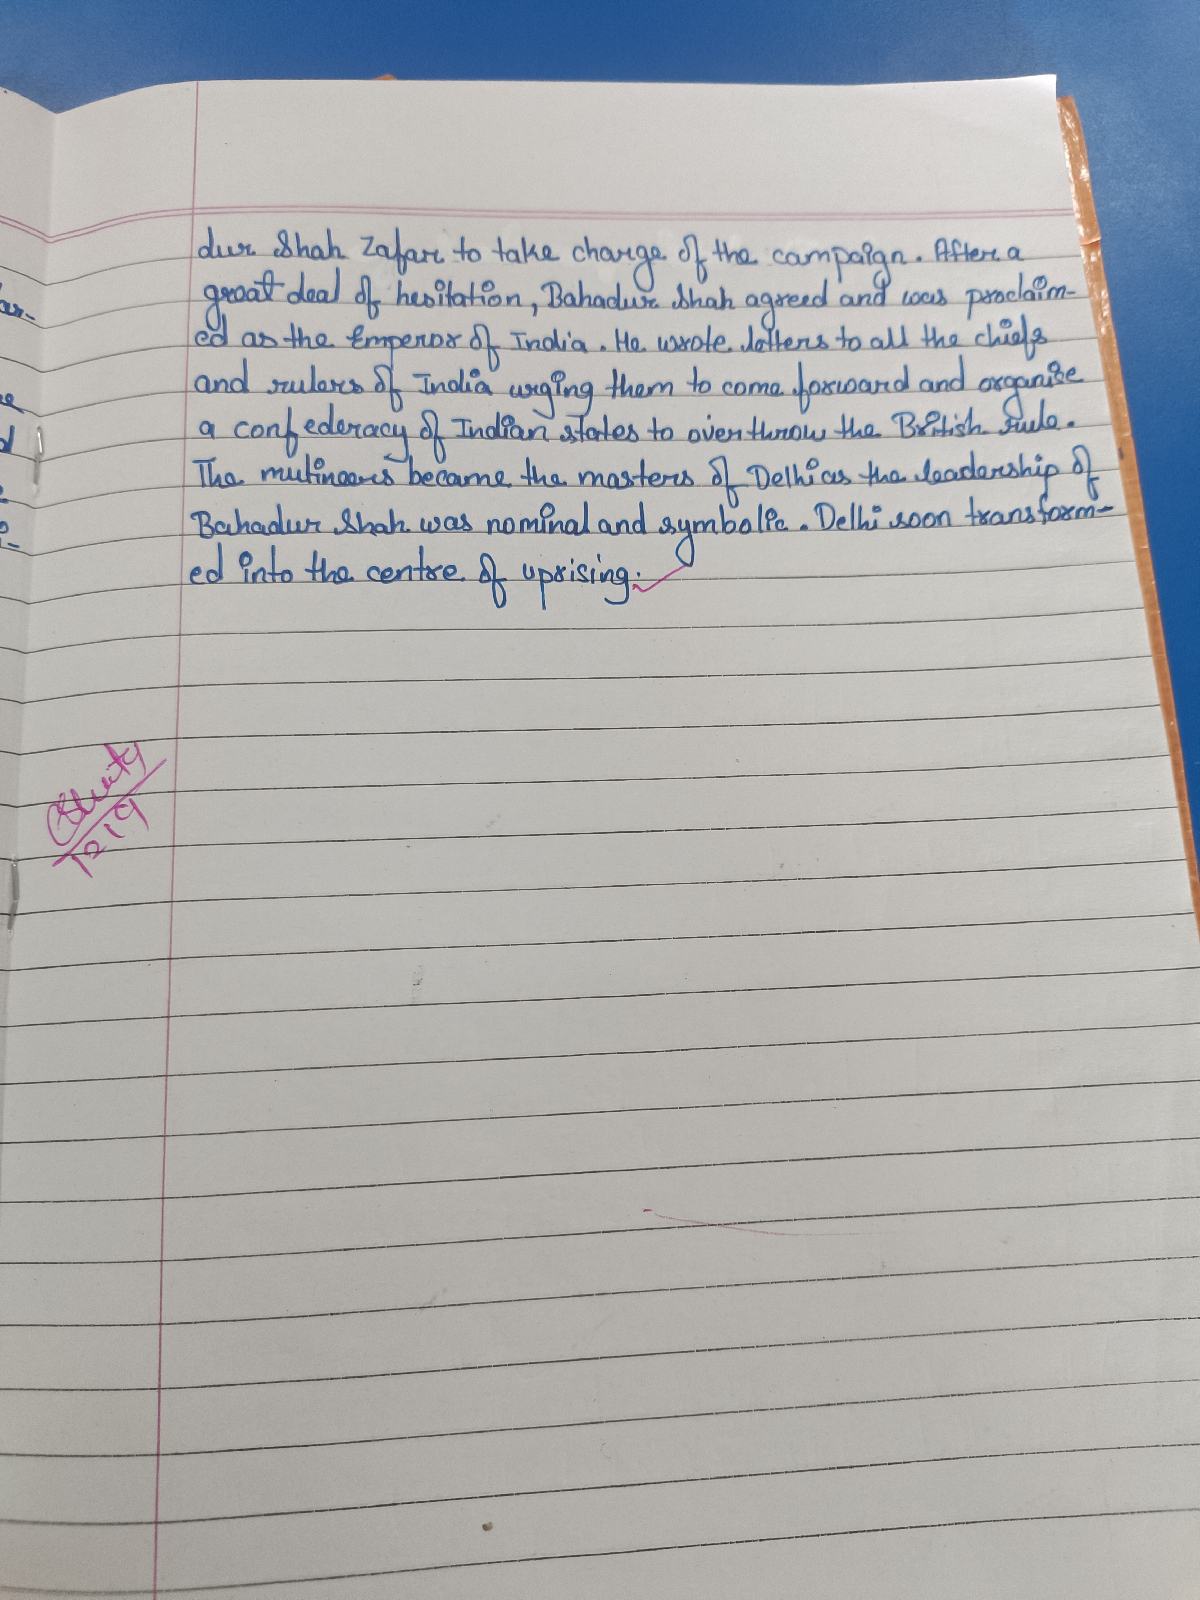 dur Shah Zafar to take charge of the campaign. After a
great deal of hesitation, Bahadur Shah agreed and was proclaim-
ed as the Emperor of India. He wrote letters to all the chiefs
and rulers of India urging them to come forward and organise
a confederacy of Indian states to overthrow the British rule.
The mutineers became the masters of Delhi as the leadership of
Bahadur Shah was nominal and symbolic. Delhi soon transform-
ed into the centre of uprising.
12/9